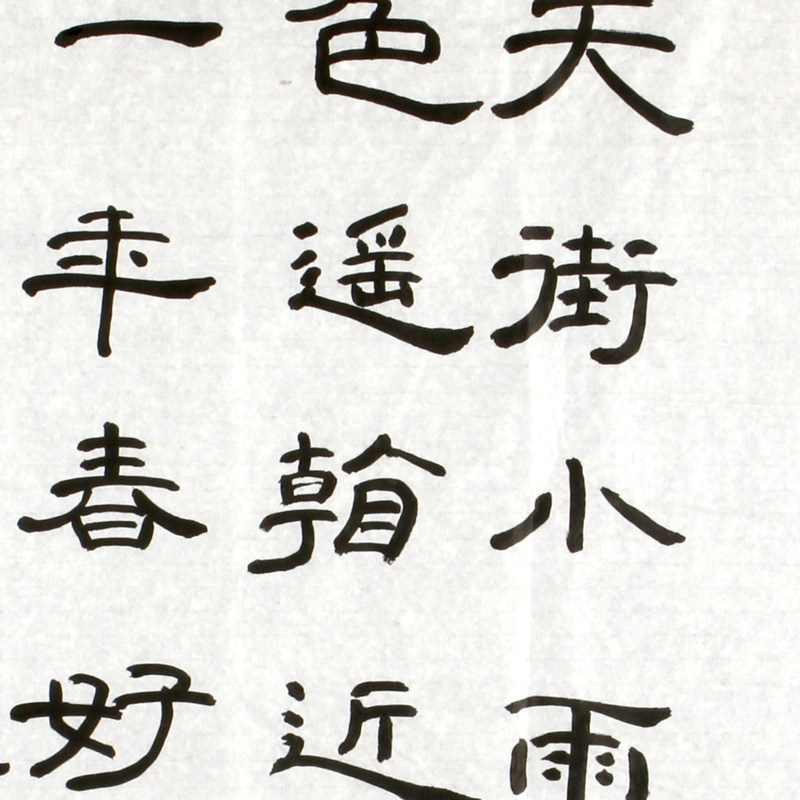 天街小雨
色遥看近
一年春好